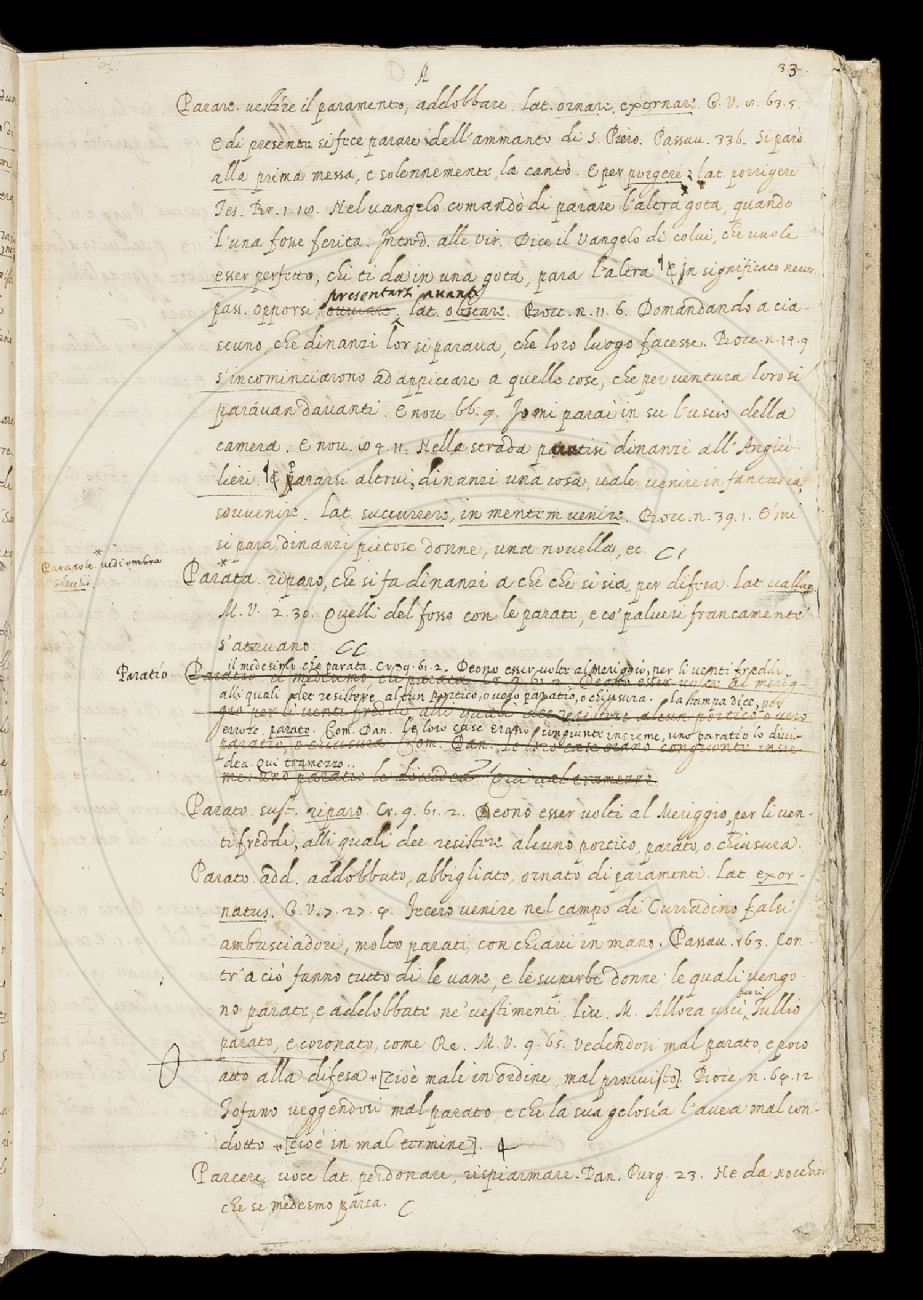 A
33
Parare. vestire il paramento, addobbare. lat. ornare, exornare. G. V. 8. 63. 5.
E di presente si fece parare dell'ammanto di S. Piero. Passau. 336. Si parò
alla prima messa, e solennemente la cantò. E per porgere. lat. porrigere
Tes. Br. 1. 18. Nel vangelo comandò di parare l'altra gota, quando
l'una fosse ferita. Introd. alle Vir. Dice il Vangelo di colui, che vuole
esser perfetto, chi ti da in una gota, para l'altra ¶ E in significato neutr.
presentarsi avanti
pass. opporsi, ovviare, lat. obstare. Bocc. n. 11. 6. Domandando a cia-
scuno, che dinanzi lor si parava, che loro luogo facesse. Bocc. n. 14. 9
s'incominciarono ad appiccare a quelle cose, che per ventura loro si
paràvan davanti. E nov. 66. 9. Jo mi parai in su l'uscio della
camera. E nov. 84. 11. Nella strada paratisi dinanzi all'Angiu-
lieri. ¶ E pararsi altrui dinanzi una cosa, vale venire in fantasia,
sovvenire. lat. succurrere, in mentem venire. Bocc. n. 39. 1. O mi
si para dinanzi pietose donne, una novella, ec.
Parasole. vedi ombra
Parata. riparo, che si fa dinanzi a che che si sia, per difesa. lat. vallum
M. V. 2. 30. Quelli del fosso con le parate, e co' palvesi francamente
s'atavano.
Paratío.
il medesimo che parata. Cr. 9. 61. 2. Deono esser volte al meriggio, per li venti freddi,
Paratio il medesimo che parata. Cr. 9. 61. 2. Deono esser volte al merig-
alli quali dee resistere alcun portico, o vero paratio, o chiusura. la stampa dice, per
gio per li venti freddi alli quali dee resistere alcun portico o vero
errore, parato. Com. Dan. Le loro case erano congiunte insieme, uno paratio le divi-
paratio, o chiusura. Com. Dan. Le loro case erano congiunte insie-
dea. qui tramezzo.
me: uno paratio le dividea. Qui val tramezzo.
Parato. sust. riparo. Cr. 9. 61. 2. Deono esser volti al Meriggio, per li ven-
ti freddi, alli quali dee resistere alcuno portico, parato, o chiusura.
Parato. add. addobbato, abbigliato, ornato di paramenti. Lat. exor-
natus. G. V. 7. 27. 4. Fecero venire nel campo di Curradino falsi
ambasciadori, molto parati, con chiavi in mano. Passau. 163. Con-
tr'a ciò fanno tutto dì le vane, e le superbe donne, le quali vengo
no parate, e addobbate ne' vestimenti. Liv. M. Allora uscì fuori Tullio
parato, e coronato, come Re. M. V. 9. 65. Vedendosi mal parato, e poco
atto alla difesa [cioè male in ordine, mal provvisto]. Bocc. n. 64. 12
Tofano veggendosi mal parato, e che la sua gelosía l'avea mal con-
dotto [cioè in mal termine].
Parcere. voce lat. perdonare, risparmiare. Dan. Purg. 23. Ne da nocchier
che se medesmo parca.